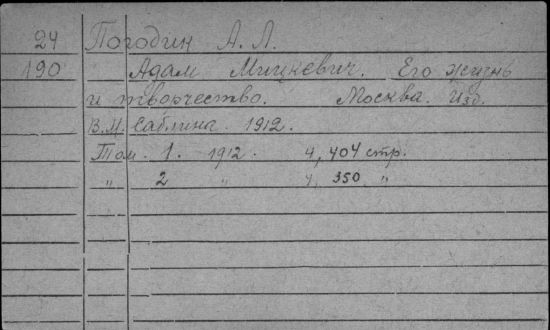 24 Погодин А. Л.
190 Адам Мицкевич. Его жизнь
и творчество. Москва. Изд.
В.М. Саблина. 1912.
Том. 1. 1912. 4, 404 стр.
" 2 " 4, 350 "